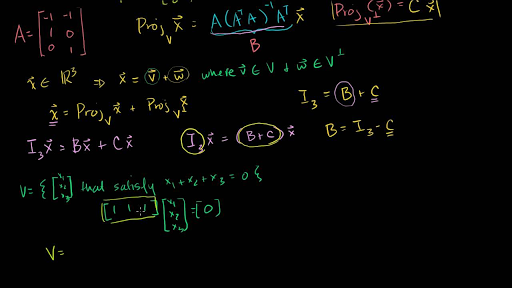 A = [-1 -1; 1 0; 0 1]
Proj_V x⃗ = A(AᵀA)⁻¹Aᵀ x⃗
B
Proj_V⊥(x⃗) = C x⃗
x⃗ ∈ ℝ³ ⇒ x⃗ = v⃗ + w⃗ where v⃗ ∈ V & w⃗ ∈ V⊥
x⃗ = Proj_V x⃗ + Proj_V⊥ x⃗
I₃ = B + C
I₃x⃗ = Bx⃗ + Cx⃗
I₃x⃗ = (B+C) x⃗
B = I₃ - C
V = { [x₁; x₂; x₃] that satisfy x₁ + x₂ + x₃ = 0 }
[1 1 1] [x₁; x₂; x₃] = [0]
V =